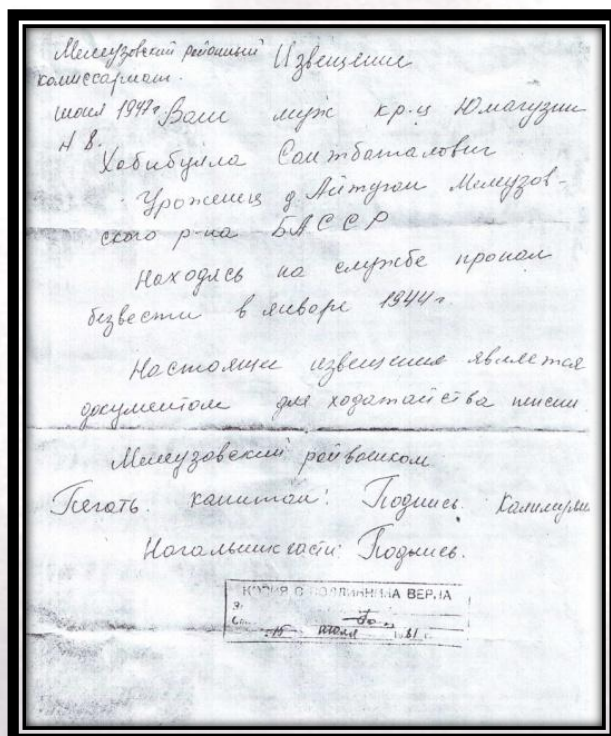 Мелеузовский районный Извещение
комиссариат.
июня 1947г Ваш муж кр-ц Юмагузин
N 8.
Хабибулла Саитбаталович
Уроженец д. Айтуган Мелеузов-
ского р-на БАССР
Находясь на службе пропал
безвести в январе 1944г.
Настояще извещения является
документом для ходатайства пенсии.
Мелеузовский райвоенком
Печать. капитан: Подпись.
Начальник части: Подпись.
КОПИЯ С ПОДЛИННИКА ВЕРНА
15 81 г.